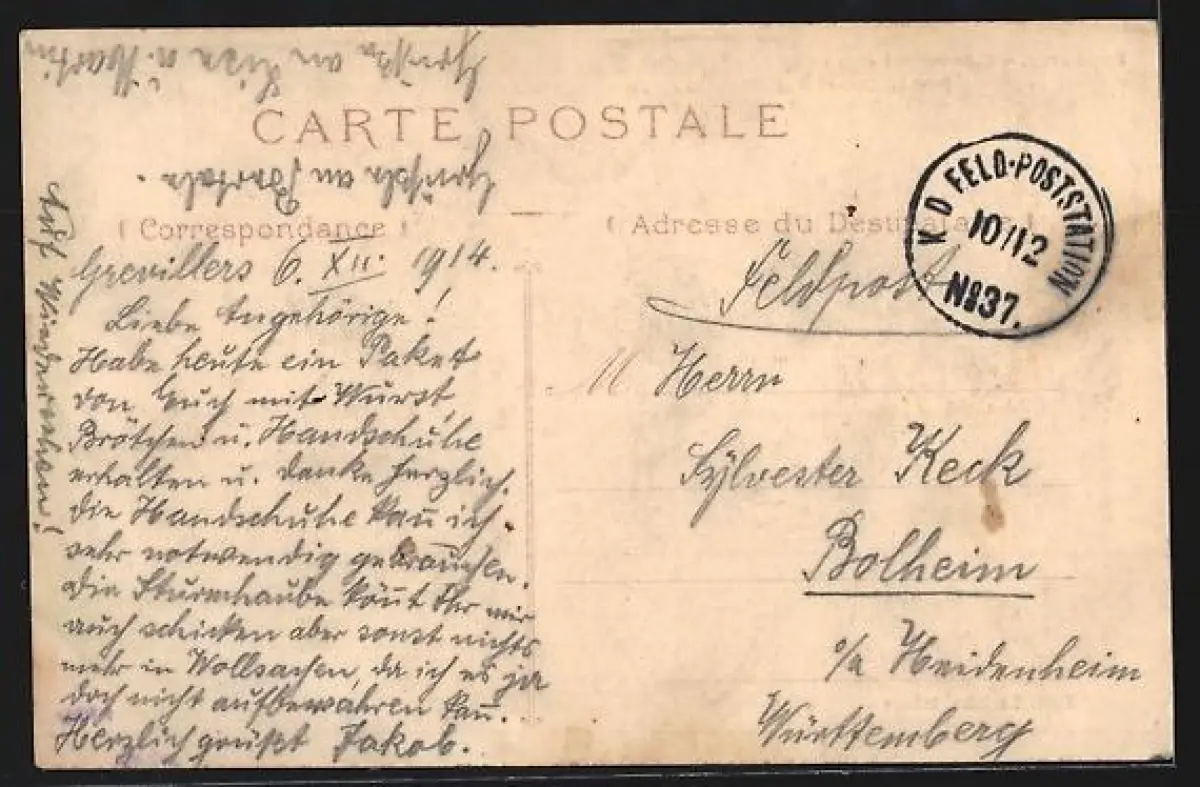 Grüße an Lisa u. Martin
CARTE POSTALE
Grüße an
( Correspondance )
( Adresse du Destinataire )
K D FELD-POSTSTATION
10/12
No 37.
Grevillers 6. XII. 1914.
Liebe Angehörige!
Habe heute ein Paket
von Euch mit Wurst,
Brötchen u. Handschuhe
erhalten u. danke herzlich.
Die Handschuhe kan̄ ich
sehr notwendig gebrauchen.
Die Sturmhaube kön̄t Ihr mir
auch schicken aber sonst nichts
mehr in Wollsachen, da ich es ja
doch nicht aufbewahren kan̄.
Herzlich grüßt Jakob.
Auf Wiedersehen!
Feldpost
M Herrn
Sylvester Keck
Bolheim
o/a Heidenheim
Württemberg